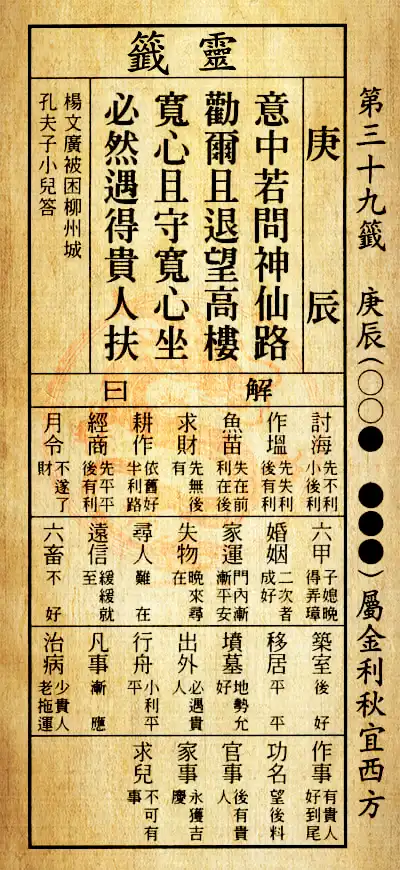 第三十九籤 庚辰(○○● ●●●)屬金利秋宜西方
靈籤
庚辰
意中若問神仙路
勸爾且退望高樓
寬心且守寬心坐
必然遇得貴人扶
楊文廣被困柳州城
孔夫子小兒答
解曰
討海 先不利小後利
作塭 先失利後有利
魚苗 失在前利在後
求財 先無後有
耕作 依舊好半利路
經商 先平平後有利
月令 不遂了財
六甲 子媳晚得弄璋
婚姻 二次者成好
家運 門內漸漸平安
失物 晚來尋在
尋人 難在
遠信 緩緩就至
六畜 不好
築室 後好
移居 平平
墳墓 地勢允好
出外 必遇貴人
行舟 小利平平
凡事 漸應
治病 少貴人老拖運
作事 有貴人好到尾
功名 望後料
官事 後有貴人
家事 永獲吉慶
求兒 不可有事